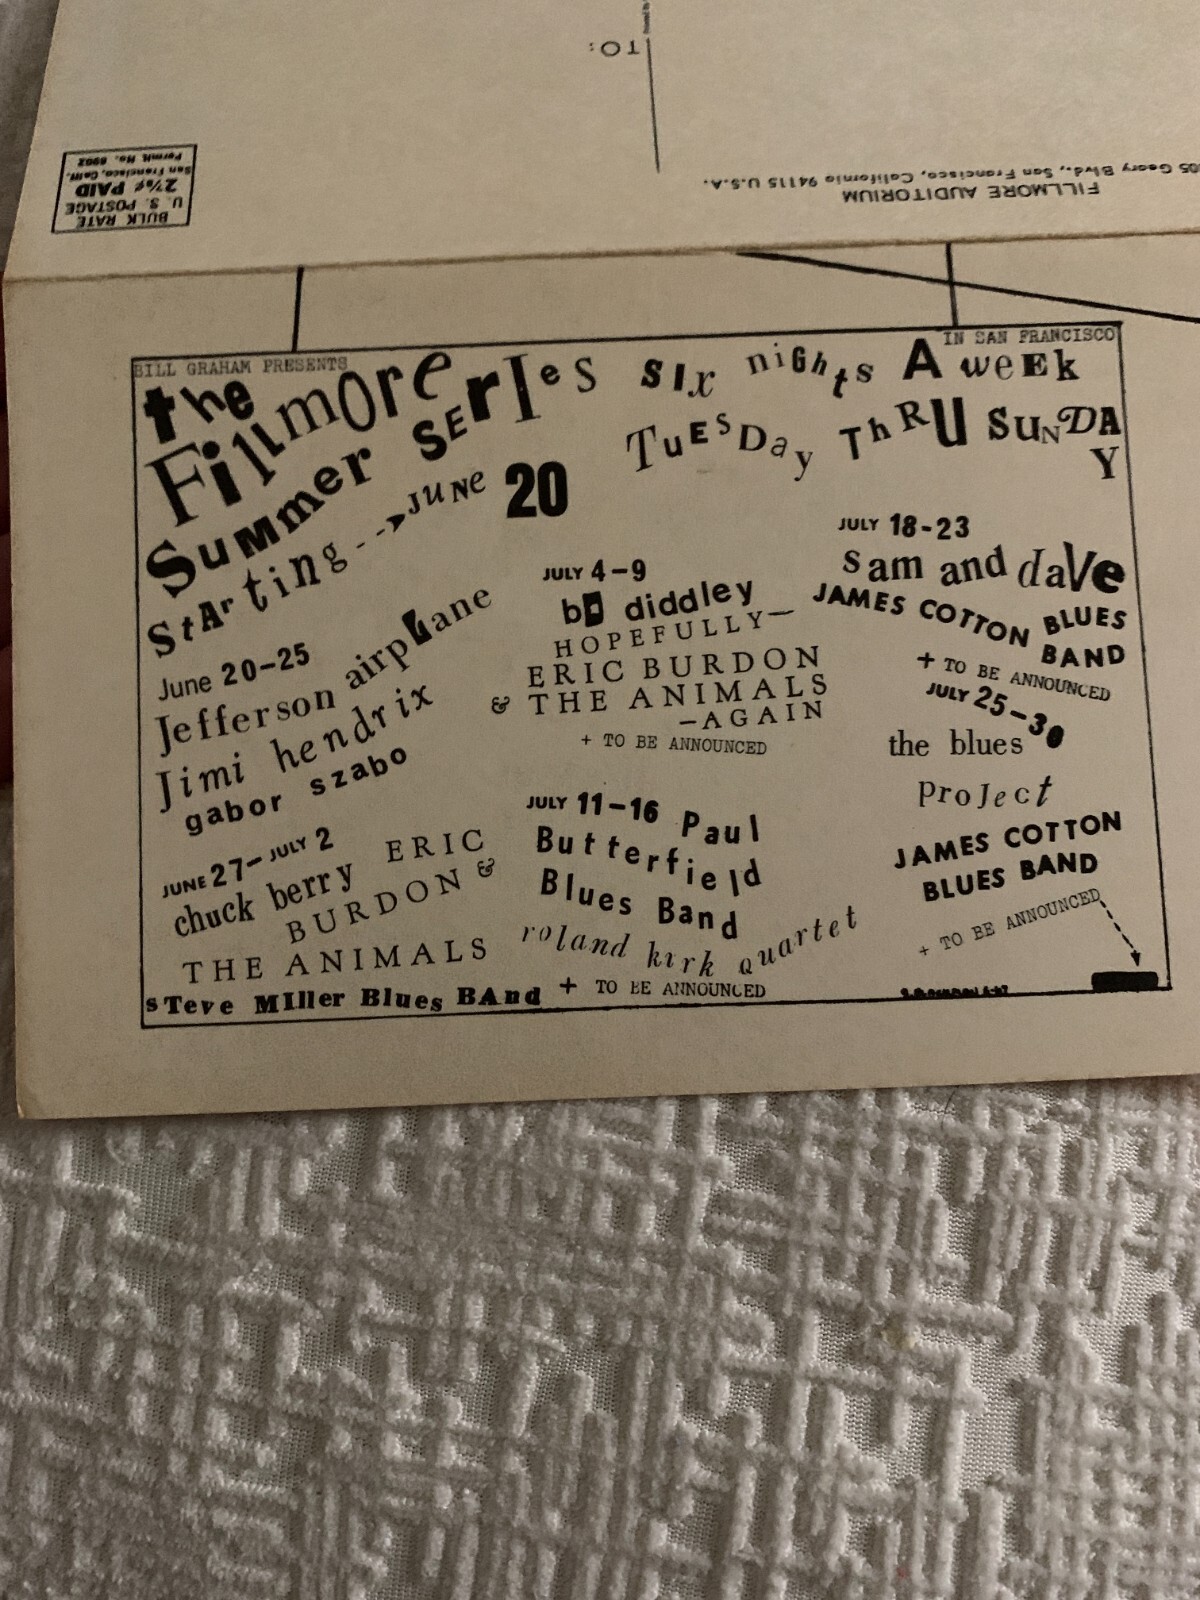 TO:
BULK RATE
U. S. POSTAGE
PAID
San Francisco, Calif.
Permit No. 8902
FILLMORE AUDITORIUM
05 Geary Blvd., San Francisco, California 94115 U.S.A.
BILL GRAHAM PRESENTS
IN SAN FRANCISCO
the
Fillmore
SuMMer SERIes
StArting --> JUNE 20
sIx niGhts A weEk
TuESDay ThRU SuNDA
Y
June 20-25
Jefferson airpLane
Jimi hendrix
gabor szabo
JUNE 27- JULY 2
chuck berry ERIC
BURDON &
THE ANIMALS
sTeve MIller Blues BAnd
JULY 4-9
bo diddley
HOPEFULLY—
ERIC BURDON
& THE ANIMALS
-AGAIN
+ TO BE ANNOUNCED
JULY 11-16 Paul
Butterfield
Blues Band
roland kirk quartet
+ TO BE ANNOUNCED
JULY 18-23
sam and daVe
JAMES COTTON BLUES
BAND
+ TO BE ANNOUNCED
JULY 25-30
the blues
proJect
JAMES COTTON
BLUES BAND
+ TO BE ANNOUNCED